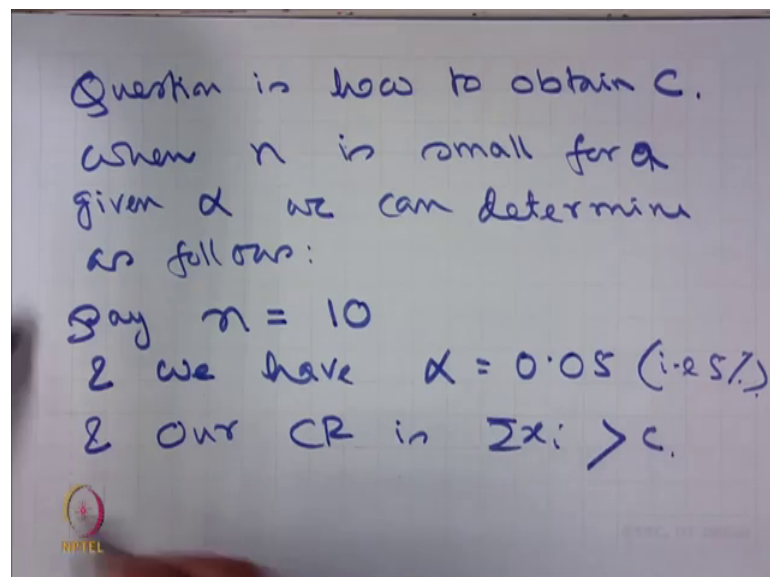 Question is how to obtain C.
when n is small for a
given α we can determine
as follows:
Say n = 10
& we have α = 0.05 (i.e 5%)
& Our CR is Σxi > C.
NPTEL